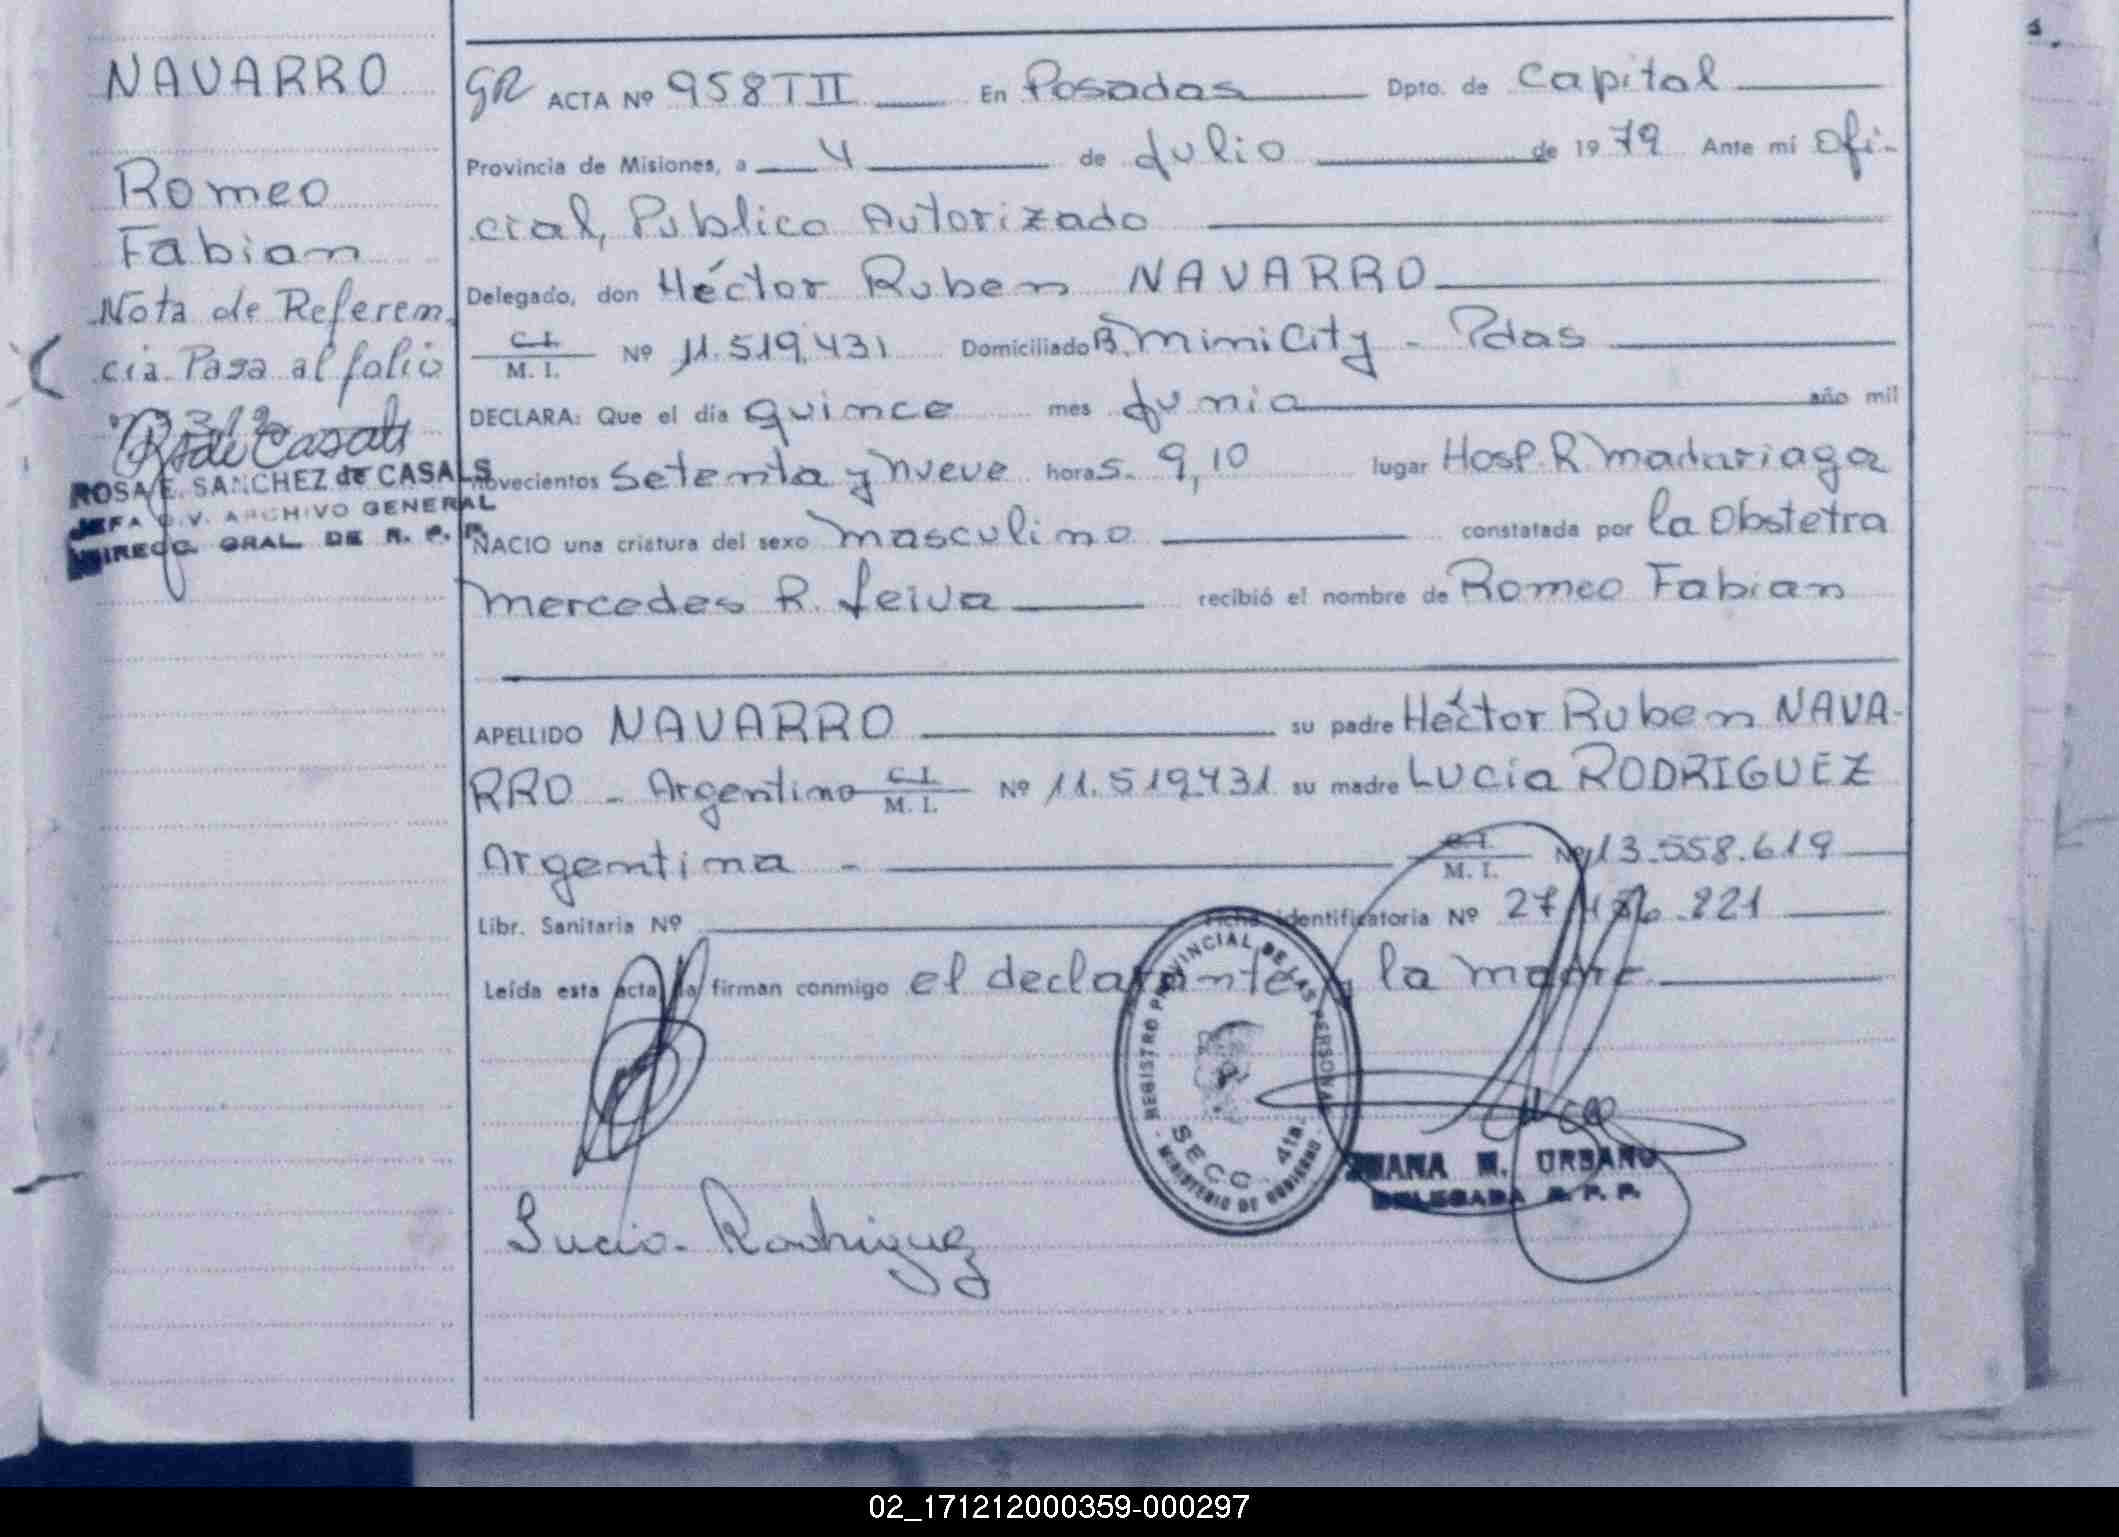 NAVARRO
Romeo
Fabian
Nota de Referen
cia Pasa al folio
ROSA E. SANCHEZ de CASALS
JEFA DIV. ARCHIVO GENERAL
DIRECC. GRAL DE R. P. P.
GR ACTA Nº 958 T II En Posadas Dpto. de Capital
Provincia de Misiones, a 4 de Julio de 1979 Ante mí Ofi-
cial, Publico Autorizado
Delegado, don Héctor Ruben NAVARRO
C. I. / M. I. Nº 11.519.431 Domiciliado Bº. MiniCity - Pdas
DECLARA: Que el día quince mes Junio año mil
novecientos Setenta y Nueve horas. 9,10 lugar Hosp. R. Madariaga
NACIO una criatura del sexo Masculino constatada por la Obstetra
Mercedes R. Leiva recibió el nombre de Romeo Fabian
APELLIDO NAVARRO su padre Héctor Ruben NAVA-
RRO - Argentino C. I. / M. I. Nº 11.519.431 su madre LUCIA RODRIGUEZ
Argentina - C. I. / M. I. Nº 13.558.619
Libr. Sanitaria Nº Ficha identificatoria Nº 27.486.221
Leída esta acta la firman conmigo el declarante y la madre
REGISTRO PROVINCIAL DE LAS PERSONAS
SECC. 4ta.
- MINISTERIO DE GOBIERNO -
JUANA N. URBANO
DELEGADA R. P. P.
Lucia Rodriguez
02_171212000359-000297